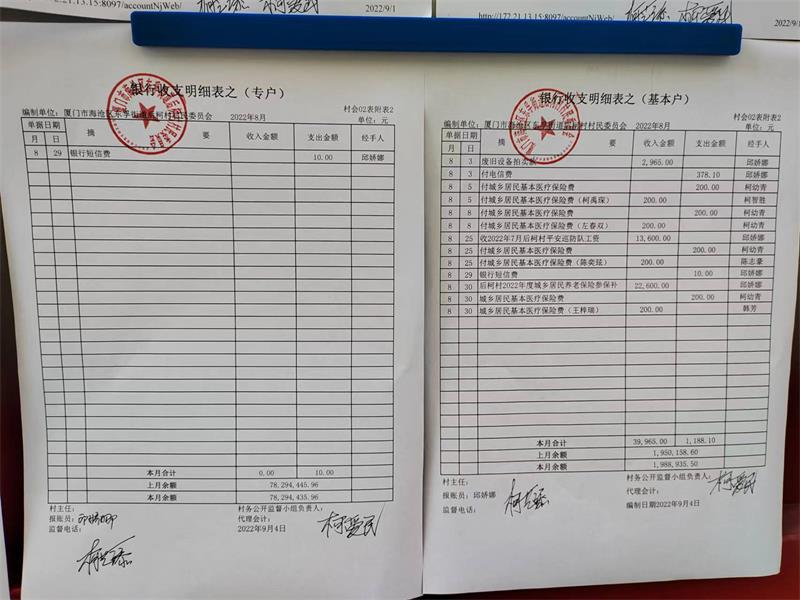 172.21.13.15:8097/accountNjWeb/
2022/9/1
http://172.21.13.15:8097/accountNjWeb/
2022/9/1
银行收支明细表之（专户）
村会02表附表2
编制单位：厦门市海沧区东孚街道后柯村村民委员会 2022年8月 单位：元
单据日期 摘要 收入金额 支出金额 经手人
月 日
8 29 银行短信费 10.00 邱娇娜
本月合计 0.00 10.00
上月余额 78,294,445.96
本月余额 78,294,435.96
村主任： 村务公开监督小组负责人：
报账员： 代理会计： 柯爱民
监督电话： 2022年9月4日
银行收支明细表之（基本户）
村会02表附表2
编制单位：厦门市海沧区东孚街道后柯村村民委员会 2022年8月 单位：元
单据日期 摘要 收入金额 支出金额 经手人
月 日
8 3 废旧设备拍卖款 2,965.00 邱娇娜
8 3 付电信费 378.10 邱娇娜
8 5 付城乡居民基本医疗保险费 200.00 柯幼青
8 5 付城乡居民基本医疗保险费（柯禹琛） 200.00 柯智胜
8 8 付城乡居民基本医疗保险费 200.00 柯幼青
8 8 付城乡居民基本医疗保险费（左春双） 200.00 柯幼青
8 25 收2022年7月后柯村平安巡防队工资 13,600.00 邱娇娜
8 25 付城乡居民基本医疗保险费 200.00 柯幼青
8 25 付城乡居民基本医疗保险费（陈奕竑） 200.00 陈志豪
8 29 银行短信费 10.00 邱娇娜
8 30 后柯村2022年度城乡居民养老保险参保补 22,600.00 邱娇娜
8 30 城乡居民基本医疗保险费 200.00 柯幼青
8 30 城乡居民基本医疗保险费（王梓瑞） 200.00 韩芳
本月合计 39,965.00 1,188.10
上月余额 1,950,158.60
本月余额 1,988,935.50
村主任： 村务公开监督小组负责人：
报账员：邱娇娜 代理会计： 柯爱民
监督电话： 编制日期2022年9月4日